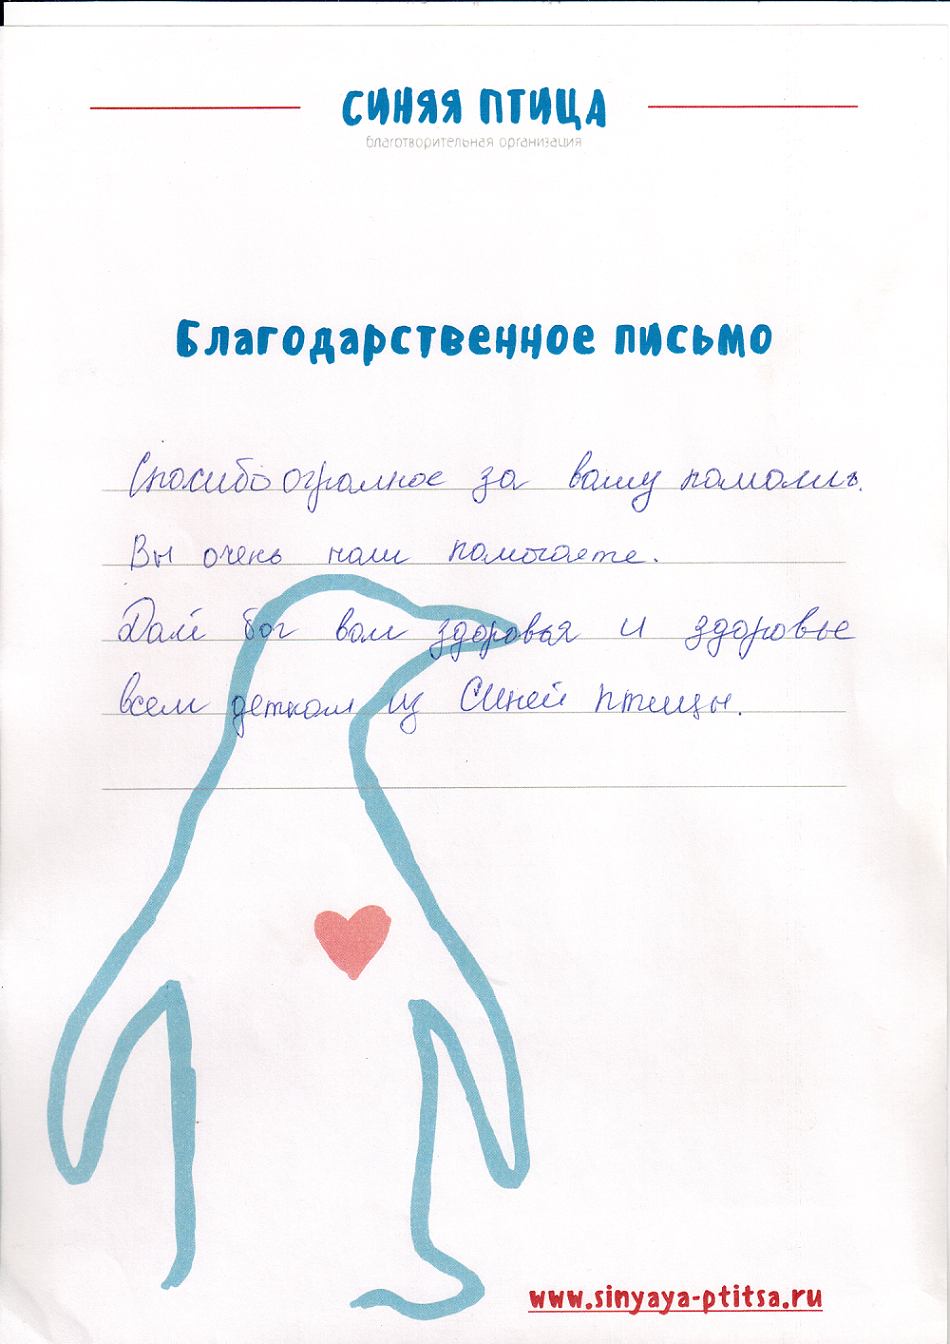 СИНЯЯ ПТИЦА
благотворительная организация
Благодарственное письмо
Спосибо огромное за вашу помощь.
Вы очень нам помогаете.
Дай бог вам здоровья и здоровье
всем деткам из Синей птицы.
www.sinyaya-ptitsa.ru